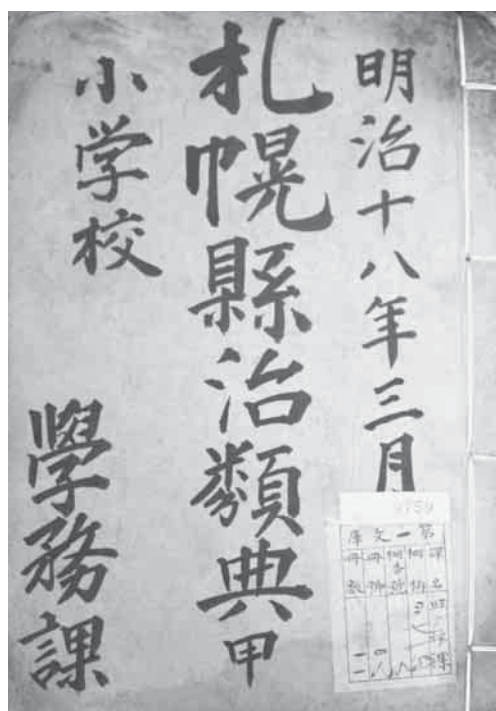 明治十八年三月
札幌縣治類典 甲
小学校
學務課
第一文庫
課名
冊数